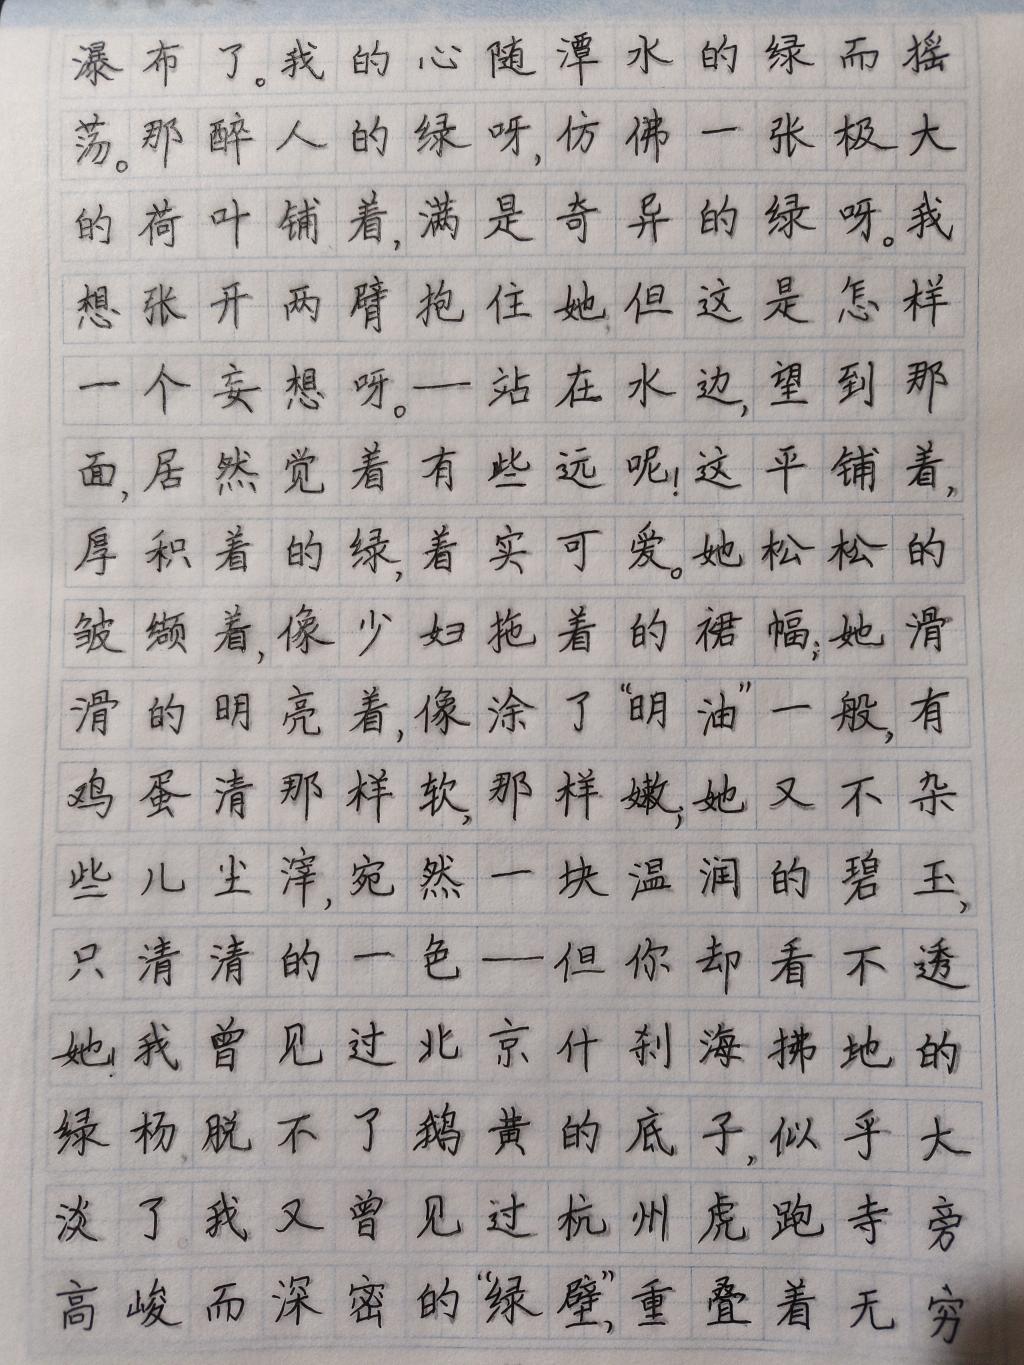 瀑布了。我的心随潭水的绿而摇
荡。那醉人的绿呀,仿佛一张极大
的荷叶铺着,满是奇异的绿呀。我
想张开两臂抱住她,但这是怎样
一个妄想呀。—站在水边,望到那
面,居然觉着有些远呢!这平铺着,
厚积着的绿,着实可爱。她松松的
皱缬着,像少妇拖着的裙幅;她滑
滑的明亮着,像涂了“明油”一般,有
鸡蛋清那样软,那样嫩;她又不杂
些儿尘滓,宛然一块温润的碧玉,
只清清的一色—但你却看不透
她!我曾见过北京什刹海拂地的
绿杨,脱不了鹅黄的底子,似乎太
淡了。我又曾见过杭州虎跑寺旁
高峻而深密的“绿壁”,重叠着无穷